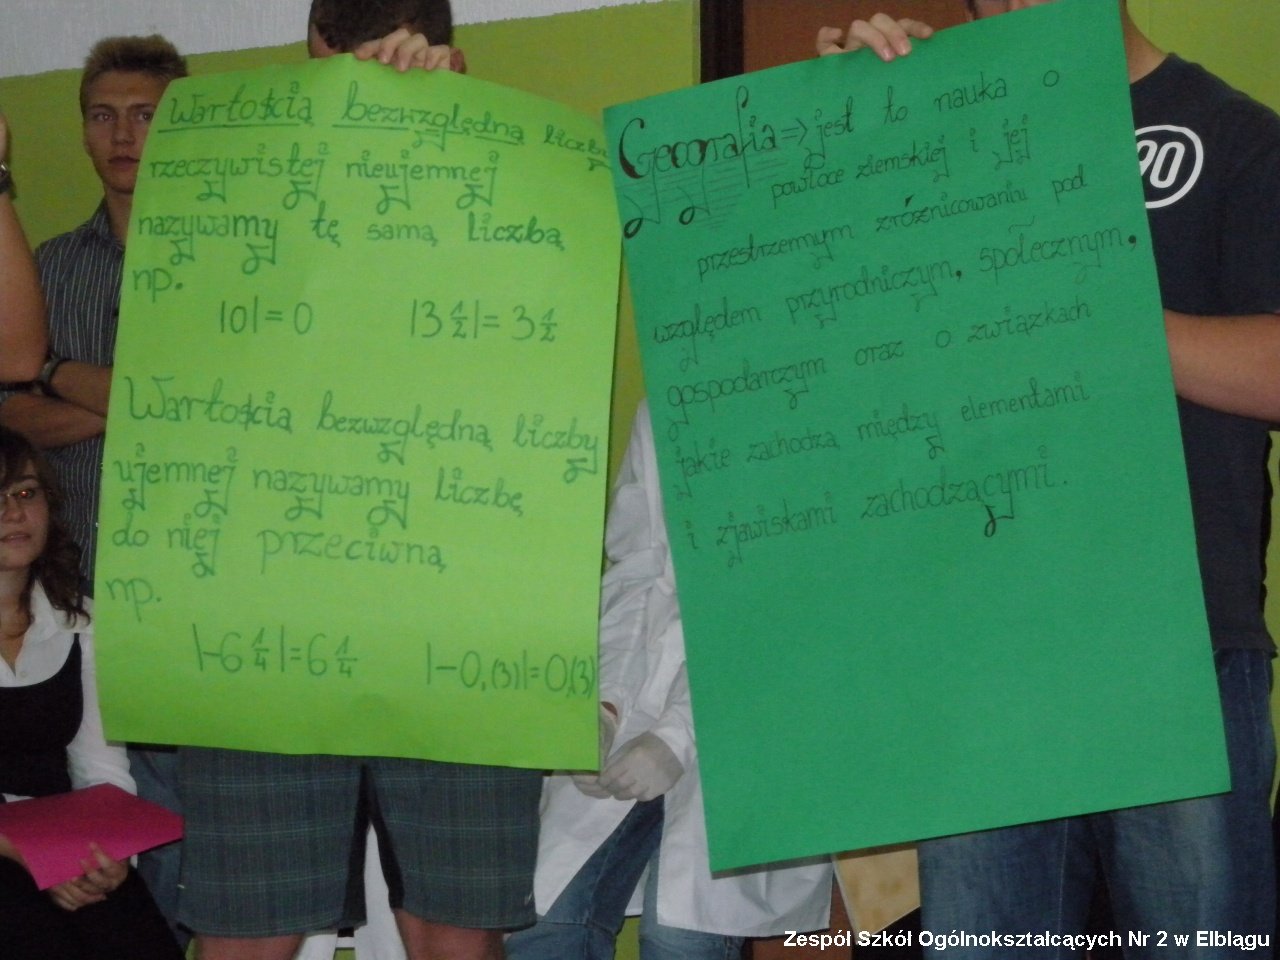 Wartością bezwzględną liczby
rzeczywistej nieujemnej
nazywamy tę samą liczbą
np.
|0| = 0 |3 1/2| = 3 1/2
Wartością bezwzględną liczby
ujemnej nazywamy liczbę
do niej przeciwną
np.
|-6 1/4| = 6 1/4 |-0,(3)| = 0,(3)
Geografia => jest to nauka o
powłoce ziemskiej i jej
przestrzennym zróżnicowaniu pod
względem przyrodniczym, społecznym,
gospodarczym oraz o związkach
jakie zachodzą między elementami
i zjawiskami zachodzącymi.
90
Zespół Szkół Ogólnokształcących Nr 2 w Elblągu